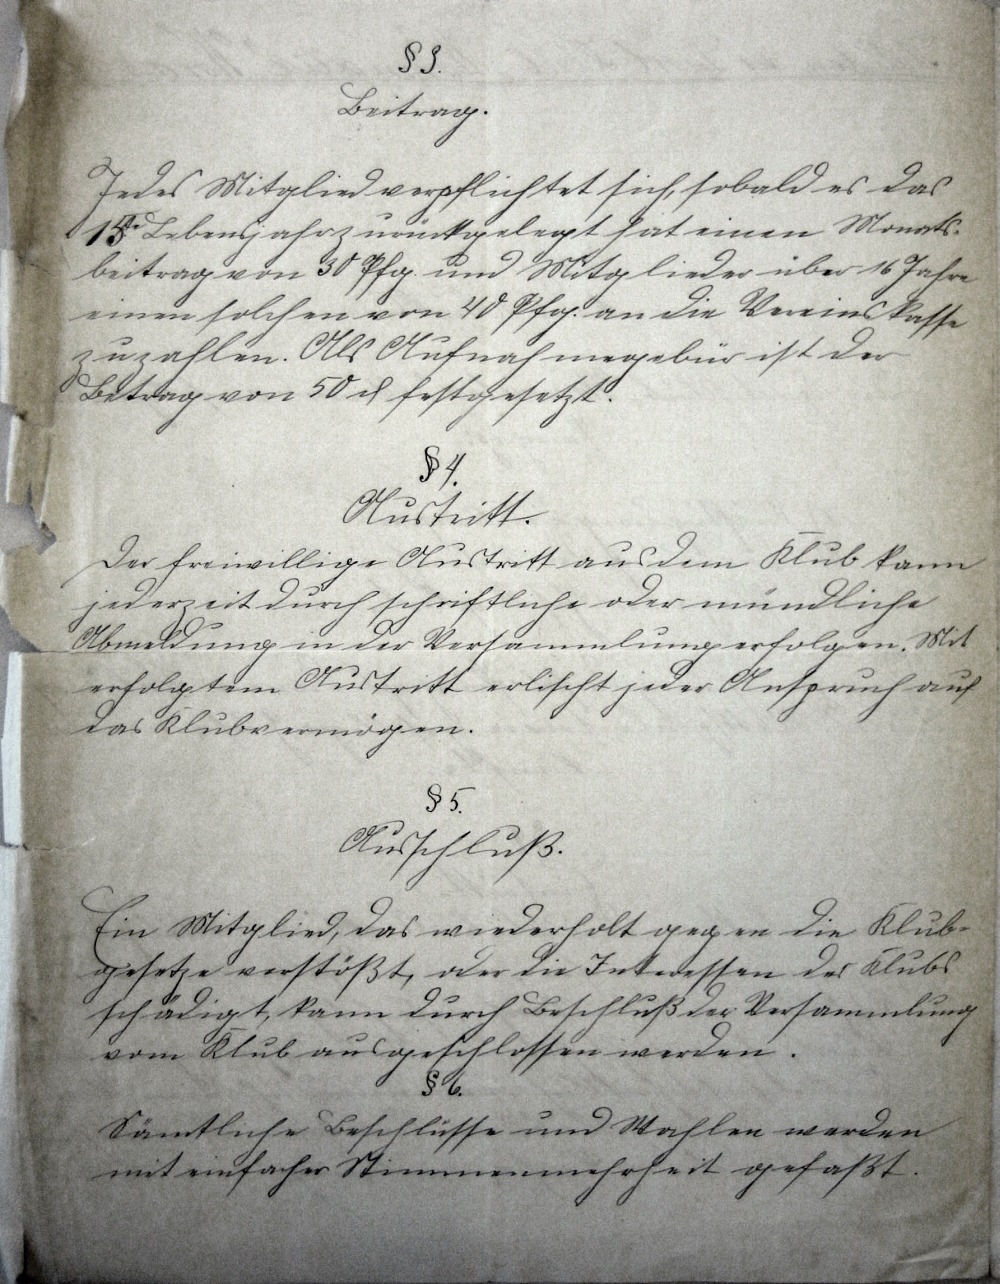 § 3.
Beitrag.
Jedes Mitglied verpflichtet sich, sobald es das
15te Lebensjahr zurückgelegt hat einen Monats-
beitrag von 30 Pfg. und Mitglieder über 16 Jahre
einen solchen von 40 Pfg. an die Vereinskasse
zu zahlen. Als Aufnahmegebür ist der
Betrag von 50 ₰ festgesetzt.
§ 4.
Austritt.
Der freiwillige Austritt aus dem Klub kann
jederzeit durch schriftliche oder mündliche
Abmeldung in der Versammlung erfolgen. Mit
erfolgtem Austritt erlischt jeder Anspruch auf
das Klubvermögen.
§ 5.
Ausschluß.
Ein Mitglied, das wiederholt gegen die Klub-
gesetze verstößt, oder die Interessen des Klubs
schädigt, kann durch Beschluß der Versammlung
vom Klub ausgeschlossen werden.
§ 6.
Sämtliche Beschlüsse und Wahlen werden
mit einfacher Stimmenmehrheit gefaßt.